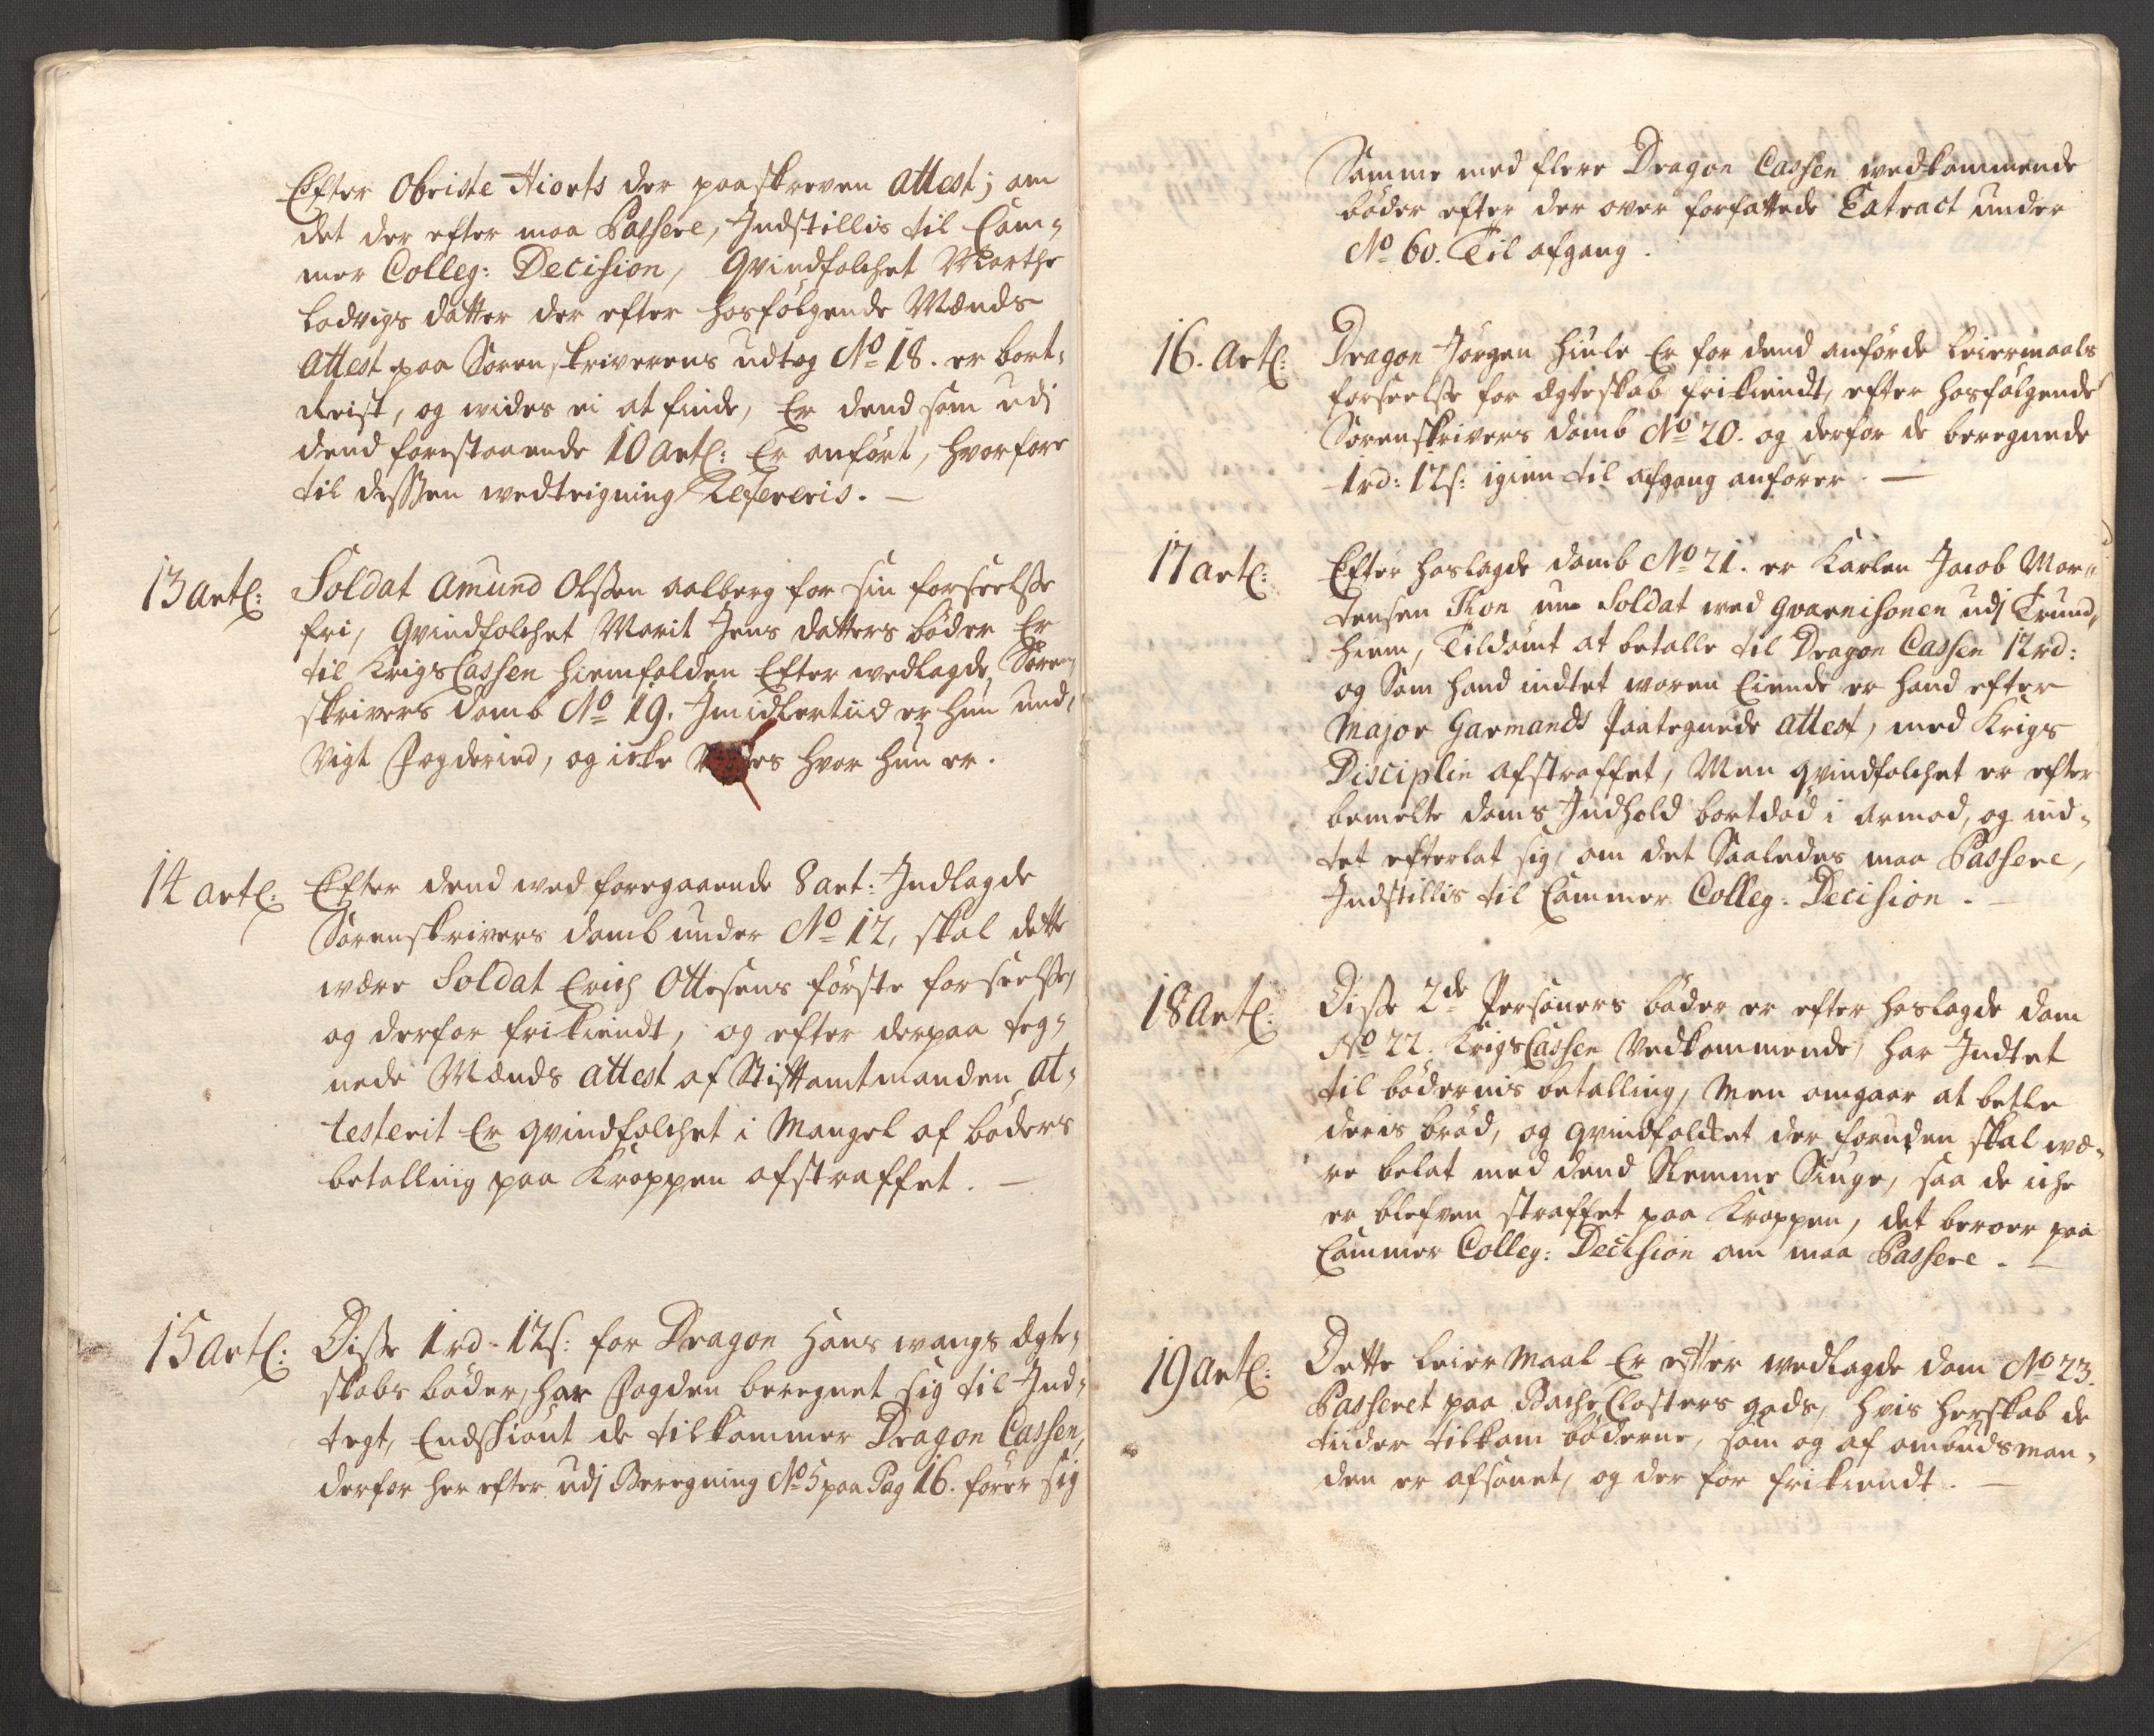 Efter Obriste Hiorts der paaskreven attest; om
det der efter maa Passere, Indstillis til Cam-
mer Colleg: Decision, Qvindfolchet Marthe
Lodvigs datter der efter hosfølgende Mænds
attest paa Sorenskriverens udtog No 18. er bort-
Reist, og vides ei at finde, Er dend som udj
dend forestaaende 10 artl: Er anført, hvorfore
til dessen vedteigning Refereris. —
13 artl: Soldat Amund Olssen Aalberg for sin forseelsse
fri, Qvindfolchet Marit Jens datters bøder Er
til Krigs Cassen hiemfalden Efter vedlagde Soren-
skrivers domb No 19. Imidlertiid er hun und-
vigt Fogderied, og icke hvor hun er.
14 artl: Efter dend ved foregaaende 8 art: Indlagde
Sorenskrivers domb under No 12, skal dette
være Soldat Erich Ottesens første forseelsse,
og derfor frikiendt, og efter derpaa teg-
nede Mænds attest af Stiftamtmanden at-
testerit Er qvindfolchet i Mangel af bøders
betalling paa Kroppen afstraffet. —
15 artl: Disse 1 rd - 12 s: for Dragon Hans wangs Ægte-
skabs bøder, har Fogden beregnet sig til Ind-
tegt, Endskiønt de tilkommer Dragon Cassen,
derfor her efter udj Beregning No 5 paa Pag 16. fører sig
Samme med flere Dragon Cassen vedkommende
bøder efter der over forfattede Extract under
No 60. Til afgang.
16. Artl: Dragon Jørgen Hiule Er for dend anførde leiermaals
forseelsse for Ægteskab frikiendt, efter hosfølgende
Sorenskrivers domb No 20. og derfor de beregnede
1 rd: 12 s: igien til afgang anfører. —
17 artl: Efter hoslagde domb No 21. er Karlen Jacob Mor-
tensen nu Soldat ved Gvarnisonen udj Trund-
hiem, Tildømt at betalle til Dragon Cassen 12 rd:
og Som hand indtet waren Eiende er hand efter
Major Garmands Paategnede attest, med Krigs
Disciplin afstraffet, Men qvindfolchet er efter
bemelte doms Indhold bortdød i armod, og ind-
tet efterlat sig, om det Saaledes maa Passere,
Indstillis til Cammer Colleg: Decision. —
18 Artl: Disse 2de Persohners bøder er efter hoslagde dom
No 22. Krigs Cassen vedkommende, har Indtet
til bødernis betalling, Men omgaar at betle
deris brød, og qvindfolcket der foruden skal væ-
re belat med dend Slemme Siuge, saa de iche
er blefven straffet paa Kroppen, det beroer paa
Cammer Colleg: Decision om maa Passere. —
19 Artl: Dette leiermaal Er efter vedlagde dom No 23.
Passeret paa Bache Closters gods, hvis herskab de
tiider tilkom bøderne, som og af ombudsman-
den er afsonet, og der for frikiendt. —